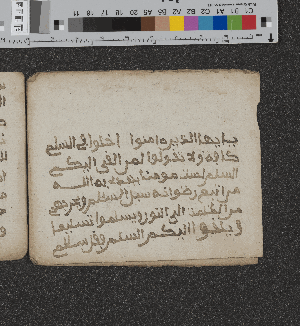 يايها الذين امنوا ادخلوا في السلم
كافه ولا تقولوا لمن القى اليكم
السلم لست مومنا يهدي به الله
من اتبع رضوانه سبل السلم ويخرجهم
من الظلمت الى النور ويسلموا تسليما
ويلقوا اليكم السلم